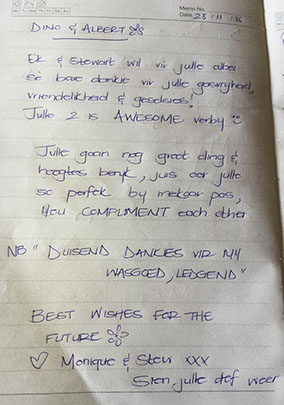 Memo No.
Mo Tu We Th Fr Sa Su
Date 28 / 11 / 16
DINO & ALBERT
Ek & Stewart wil vir julle albei
sê baie dankie vir julle gasvryheid,
vriendelikheid & geselsies!
Julle 2 is AWESOME verby
Julle gaan nog groot dinge &
hoogtes bereik, juis oor julle
so perfek by mekaar pas,
You COMPLIMENT each other
NB " DUISEND DANKIES VIR MY
WASGOED, LEDGEND "
BEST WISHES FOR THE
FUTURE
Monique & Stew xxx
Sien julle def weer